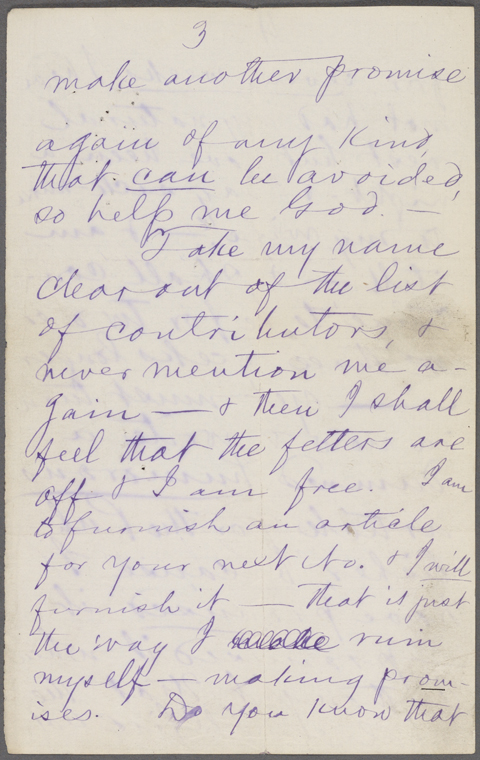 3
make another promise
again of any kind,
that can be avoided,
so help me God. —
Take my name
clear out of the list
of contributors, &
never mention me a-
gain — & then I shall
feel that the fetters are
off & I am free. I am
to furnish an article
for your next No. & I will
furnish it — that is just
the way I ruin
myself — making prom-
ises. Do you know that